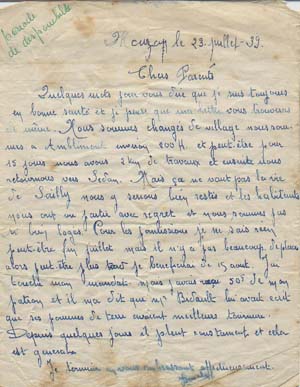 période
de disponibilité
Mouzay le 23 juillet - 39.
Chers Parents
Quelques mots pour vous dire que je suis toujours
en bonne santé et je pense que ma lettre vous trouvera
de même. Nous sommes changés de village nous sommes
à Amblimont environ 200 H et peut-être pour
15 jours nous avons 2 km de travaux et ensuite nous
retournons vers Sedan. Mais ça ne vaut pas la vie
de Sailly nous y serions bien restés et les habitants
nous ont vu partir avec regret et nous sommes pas
si bien logés. Pour les permissions je ne sais rien
peut-être fin juillet mais il n'y a pas beaucoup de places
alors peut-être plus tard je bénéficierai du 15 août. J'ai
touché mon mandat mais j'avais reçu 50f de mon
patron et il m'a dit que Mr Bedault lui avait écrit
que ses pommes de terre avaient meilleure tournure.
Depuis quelques jours il pleut constamment et cela
est général.
Je termine en vous embrassant affectueusement.